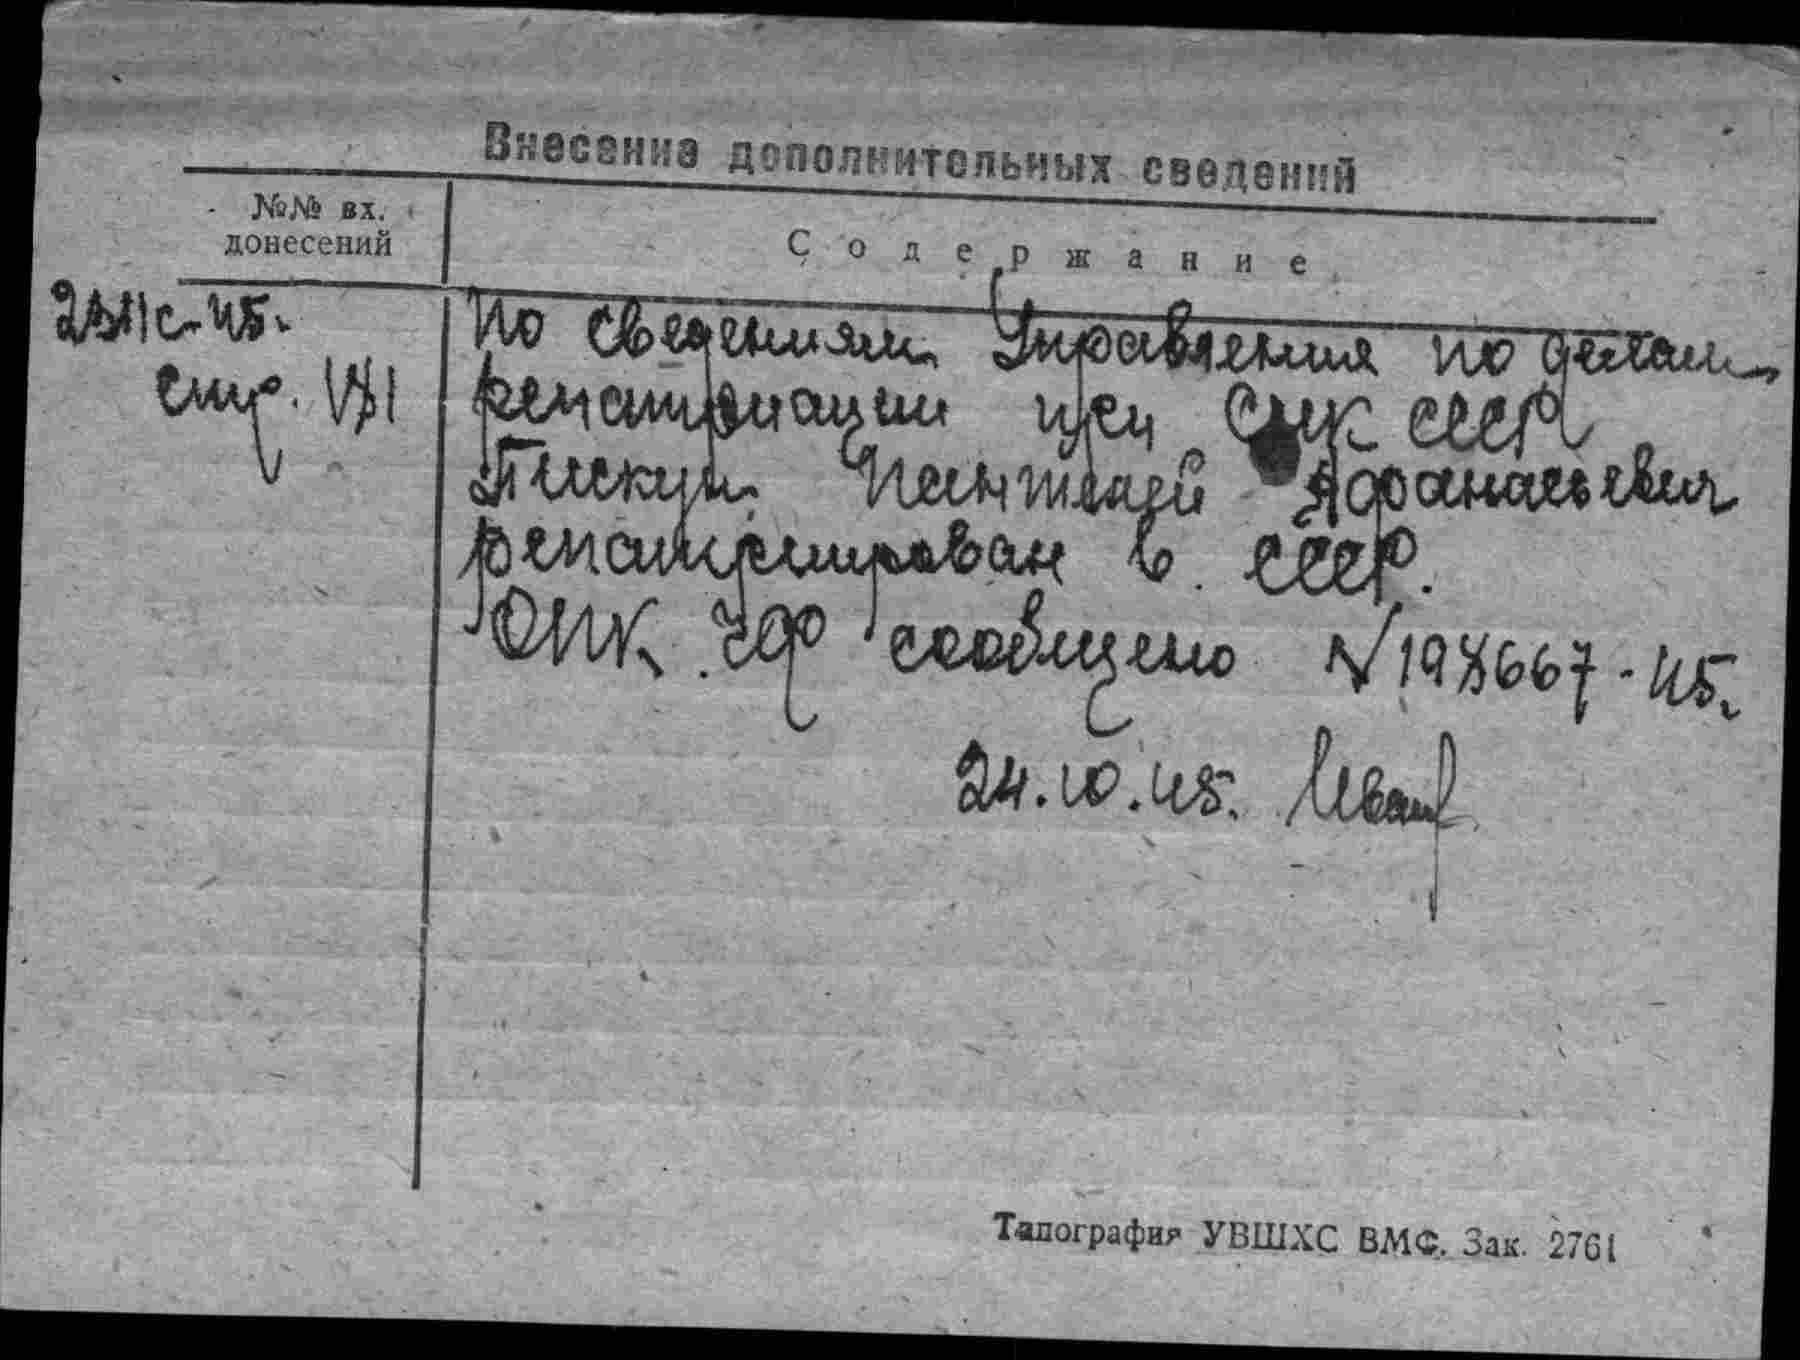 Внесение дополнительных сведений
№№ вх.
донесений
Содержание
По сведениям Управления по делам
репатриации при СНК СССР
Пискун Пантелей Афанасьевич
репатриирован в СССР.
ОПК ЧФ сообщено N 198667-45.
стр.
24.10.45.
Типография УВШХС ВМФ. Зак. 2761